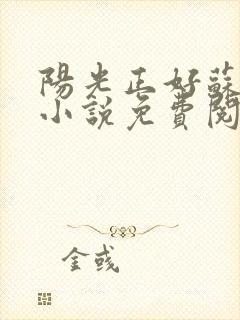 陽光正好蘇
小說免費閱
金彧